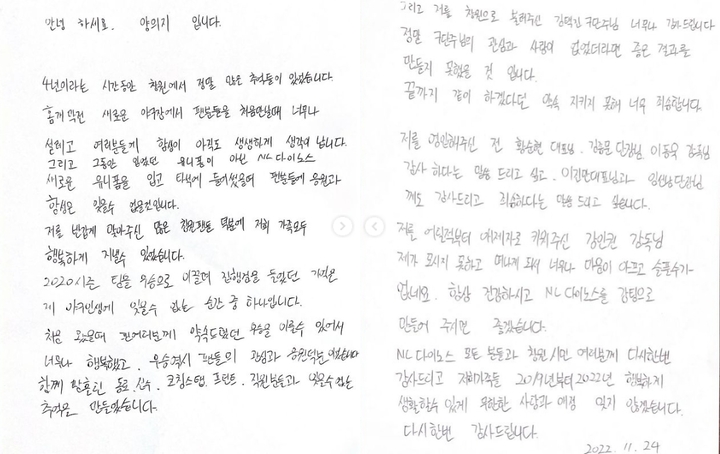 안녕 하세요. 양의지 입니다.
4년이라는 시간동안 창원에서 정말 많은 추억들이 있었습니다.
홈개막전 새로운 야구장에서 팬분들을 처음만났때 너무나
설레고 여러분들께 함성이 아직도 생생하게 생각이 납니다.
그리고 그동안 입었던 유니폼이 아닌 NC 다이노스
새로운 유니폼을 입고 타석에 들어섰을때 팬분들에 응원과
함성은 잊을수 없을것입니다.
저를 반갑게 맞아주신 많은 창원팬분 덕분에 저희 가족모두
행복하게 지낼수 있었습니다.
2020시즌 팀을 우승으로 이끌며 집행검을 들었던 기억은
제 야구인생에 잊을수 없는 순간 중 하나입니다.
처음 왔을때 팬여러분께 약속드렸던 우승을 이룰수 있어서
너무나 행복했고, 우승역시 팬분들의 관심과 응원덕분이었습니다
함께 땀흘린 동료 선수, 코칭스탭, 프런트, 직원분들과 잊을수 없는
추억을 만들었습니다.
그리고 저를 창원으로 불러주신 김택진 구단주님 너무나 감사드립니다
정말 구단주님의 관심과 사랑이 없었더라면 좋은 결과를
만들지 못했을 것 입니다.
끝까지 같이 하겠다던 약속 지키지 못해 너무 죄송합니다.
저를 영입해주신 전 황순현 대표님, 김종문 단장님 이동욱 감독님
감사 하다는 말씀 드리고 싶고, 이진만대표님과 임선남단장님
께도 감사드리고 죄송하다는 말씀 드리고 싶습니다.
저를 어릴적부터 애제자로 키워주신 강인권 감독님
제가 모시지 못하고 떠나게 되서 너무나 마음이 아프고 슬플수가
없네요. 항상 건강하시고 NC 다이노스를 강팀으로
만들어 주시면 좋겠습니다.
NC 다이노스 모든 분들과 창원 시민 여러분께 다시한번
감사드리고 저희가족들 2019년부터 2022년 행복하게
생활할수 있게 무한한 사랑과 애정 잊지 않겠습니다.
다시한번 감사드립니다.
2022. 11. 24